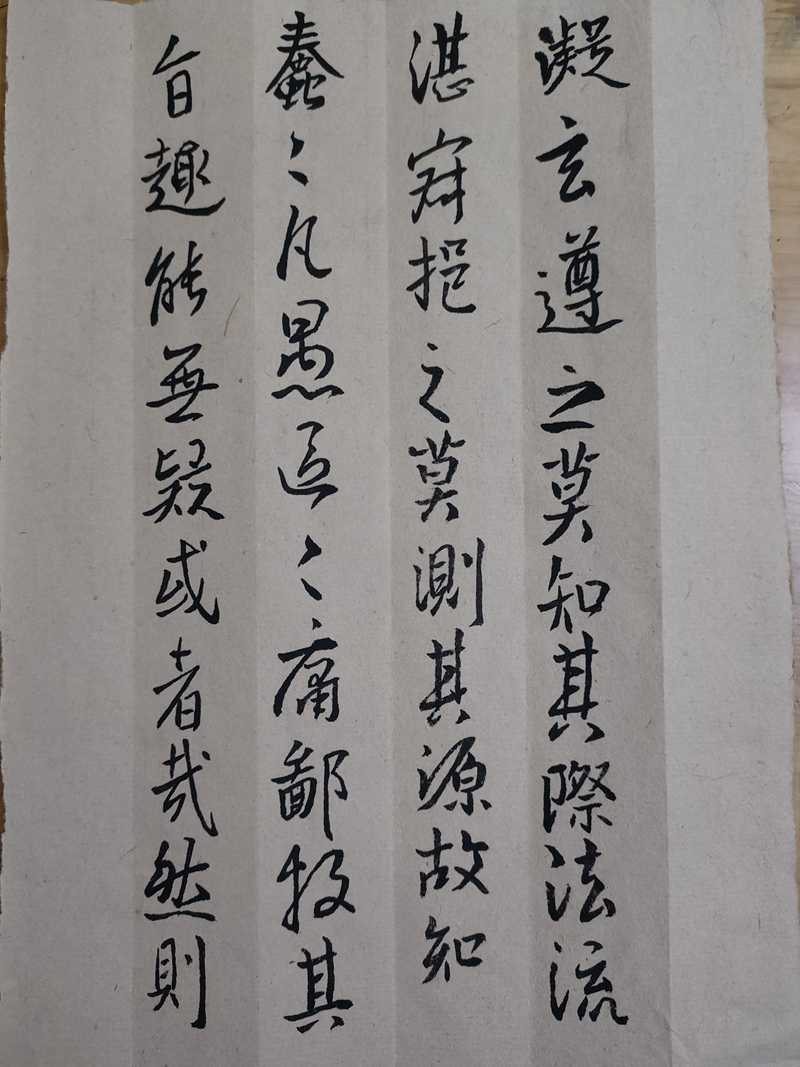 凝玄遵之莫知其際法流
湛寂挹之莫測其源故知
蠢〻凡愚區〻庸鄙投其
旨趣能無疑或者哉然則